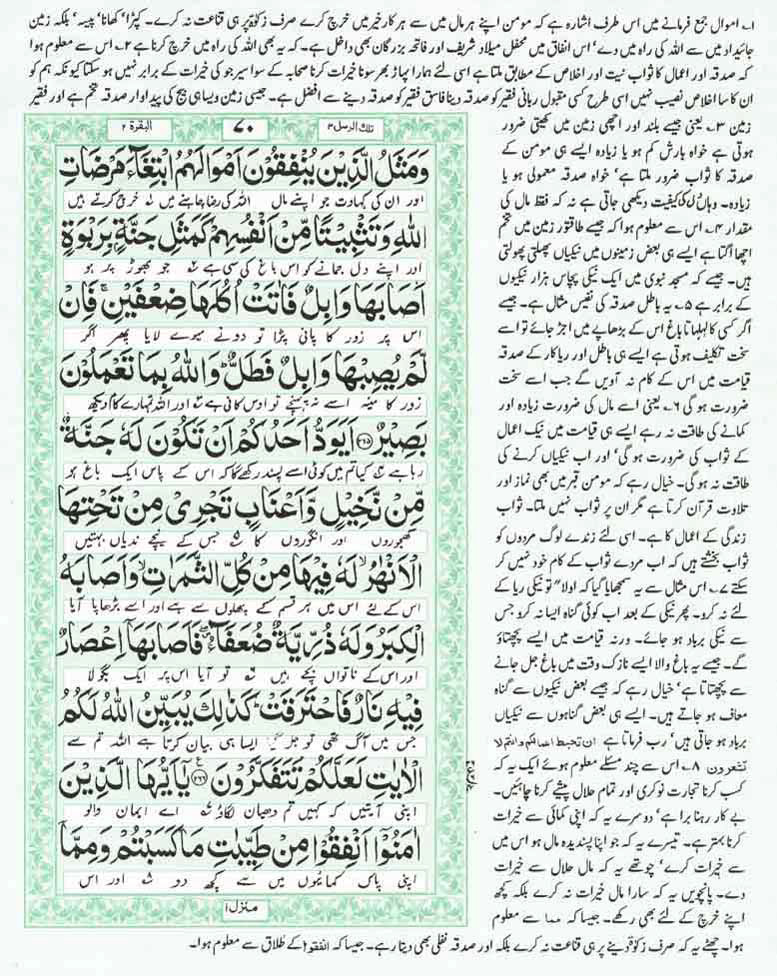 ۱۔ اموال جمع فرمانے میں اس طرف اشارہ ہے کہ مومن اپنے ہر مال میں سے ہر کار خیر میں خرچ کرے صرف زکوٰۃ پر ہی قناعت نہ کرے۔ کپڑا' کھانا' پیسہ' بلکہ زمین
جائیداد میں سے اللہ کی راہ میں دے' اس انفاق میں محفل میلاد شریف اور فاتحہ بزرگان بھی داخل ہے۔ کہ یہ بھی اللہ کی راہ میں خرچ کرنا ہے ۲۔ اس سے معلوم ہوا
کہ صدقہ اور اعمال کا ثواب نیت اور اخلاص کے مطابق ملتا ہے اسی لئے ہمارا پہاڑ بھر سونا خیرات کرنا صحابہ کے سوا سیر جو کی خیرات کے برابر نہیں ہو سکتا کیونکہ ہم کو
ان کا سا اخلاص نصیب نہیں اسی طرح کسی مقبول ربانی فقیر کو صدقہ دینا فاسق فقیر کو صدقہ دینے سے افضل ہے۔ جیسی زمین ویسا ہی بیج کی پیداوار صدقہ تخم ہے اور فقیر
تلك الرسل ۳
۷۰
البقرة ۲
وَمَثَلُ الَّذِيْنَ يُنْفِقُوْنَ اَمْوَالَهُمُ ابْتِغَآءَ مَرْضَاتِ
اور ان کی کہاوت جو اپنے مال اللہ کی رضا چاہنے میں خرچ کرتے ہیں
اللّٰهِ وَتَثْبِيْتًا مِّنْ اَنْفُسِهِمْ كَمَثَلِ جَنَّةٍۭ بِرَبْوَةٍ
اور اپنے دل جمانے کو اس باغ کی سی ہے جو بھوڑ پر ہو
اَصَابَهَا وَابِلٌ فَاٰتَتْ اُكُلَهَا ضِعْفَيْنِ ۚ فَاِنْ
اس پر زور کا پانی پڑا تو دونے میوے لایا پھر اگر
لَّمْ يُصِبْهَا وَابِلٌ فَطَلٌّ ؕ وَاللّٰهُ بِمَا تَعْمَلُوْنَ
زور کا مینہ اسے نہ پہنچے تو اوس کافی ہے اور اللہ تمہارے کام دیکھ
بَصِيْرٌ ۝۲۶۵ اَيَوَدُّ اَحَدُكُمْ اَنْ تَكُوْنَ لَهٗ جَنَّةٌ
رہا ہے کیا تم میں کوئی اسے پسند رکھے گا کہ اس کے پاس ایک باغ ہو
مِّنْ نَّخِيْلٍ وَّاَعْنَابٍ تَجْرِيْ مِنْ تَحْتِهَا
کھجوروں اور انگوروں کا جس کے نیچے ندیاں بہتیں
الْاَنْهٰرُ ۙ لَهٗ فِيْهَا مِنْ كُلِّ الثَّمَرٰتِ ۙ وَاَصَابَهُ
اس کے لئے اس میں ہر قسم کے پھلوں سے ہے اور اسے بڑھاپا آیا
الْكِبَرُ وَلَهٗ ذُرِّيَّةٌ ضُعَفَآءُ ۖ فَاَصَابَهَاۤ اِعْصَارٌ
اور اس کے ناتواں بچے ہیں تو آیا اس پر ایک بگولا
فِيْهِ نَارٌ فَاحْتَرَقَتْ ؕ كَذٰلِكَ يُبَيِّنُ اللّٰهُ لَكُمُ
جس میں آگ تھی تو جل گیا ایسا ہی بیان کرتا ہے اللہ تم سے
الْاٰيٰتِ لَعَلَّكُمْ تَتَفَكَّرُوْنَ ۝۲۶۶ يٰۤاَيُّهَا الَّذِيْنَ
اپنی آیتیں کہ کہیں تم دھیان لگاؤ اے ایمان والو
اٰمَنُوْۤا اَنْفِقُوْا مِنْ طَيِّبٰتِ مَا كَسَبْتُمْ وَمِمَّاۤ
اپنی پاک کمائیوں میں سے کچھ دو اور اس
منزل ۱
زمین ۳۔ یعنی جیسے بلند اور اچھی زمین میں کھیتی ضرور
ہوتی ہے خواہ بارش کم ہو یا زیادہ ایسے ہی مومن کے
صدقہ کا ثواب ضرور ملتا ہے' خواہ صدقہ معمولی ہو یا
زیادہ۔ وہاں دل کی کیفیت دیکھی جاتی ہے نہ کہ فقط مال کی
مقدار ۴۔ اس سے معلوم ہوا کہ جیسے طاقتور زمین میں تخم
اچھا اگتا ہے ایسے ہی بعض زمینوں میں نیکیاں پھلتی پھولتی
ہیں۔ جیسے کہ مسجد نبوی میں ایک نیکی پچاس ہزار نیکیوں
کے برابر ہے ۵۔ یہ باطل صدقہ کی نفیس مثال ہے۔ جیسے
اگر کسی کا لہلہاتا باغ اس کے بڑھاپے میں اجڑ جائے تو اسے
سخت تکلیف ہوتی ہے ایسے ہی باطل اور ریا کار کے صدقہ
قیامت میں اس کے کام نہ آویں گے جب اسے سخت
ضرورت ہو گی ۶۔ یعنی اسے مال کی ضرورت زیادہ اور
کمانے کی طاقت نہ رہے ایسے ہی قیامت میں نیک اعمال
کے ثواب کی ضرورت ہو گی' اور اب نیکیاں کرنے کی
طاقت نہ ہوگی۔ خیال رہے کہ مومن قبر میں بھی نماز اور
تلاوت قرآن کرتا ہے مگر ان پر ثواب نہیں ملتا۔ ثواب
زندگی کے اعمال کا ہے۔ اسی لئے زندے لوگ مردوں کو
ثواب بخشتے ہیں کہ اب مردے ثواب کے کام خود نہیں کر
سکتے ۷۔ اس مثال سے یہ سمجھایا گیا کہ اولا" تو نیکی ریا کے
لئے نہ کرو۔ پھر نیکی کے بعد اب کوئی گناہ ایسا نہ کرو جس
سے نیکی برباد ہو جائے۔ ورنہ قیامت میں ایسے پچھتاؤ
گے۔ جیسے یہ باغ والا ایسے نازک وقت میں باغ جل جانے
سے پچھتاتا ہے' خیال رہے کہ جیسے بعض نیکیوں سے گناہ
معاف ہو جاتے ہیں۔ ایسے ہی بعض گناہوں سے نیکیاں
برباد ہو جاتی ہیں' رب فرماتا ہے ان تحبط اعمالکم وانتم لا
تشعرون ۸۔ اس سے چند مسئلے معلوم ہوئے ایک یہ کہ
کسب کرنا تجارت نوکری اور تمام حلال پیشے کرنا چاہئیں۔
بے کار رہنا برا ہے' دوسرے یہ کہ اپنی کمائی سے خیرات
کرنا بہتر ہے۔ تیسرے یہ کہ جو اپنا پسندیدہ مال ہو اس میں
سے خیرات کرے' چوتھے یہ کہ مال حلال سے خیرات
دے۔ پانچویں یہ کہ سارا مال خیرات نہ کرے بلکہ کچھ
اپنے خرچ کے لئے بھی رکھے۔ جیسا کہ مما سے معلوم
ہوا۔ چھٹے یہ کہ صرف زکوٰۃ دینے پر ہی قناعت نہ کرے بلکہ اور صدقہ نفلی بھی دیتا رہے۔ جیسا کہ انفقوا کے طلاق سے معلوم ہوا۔